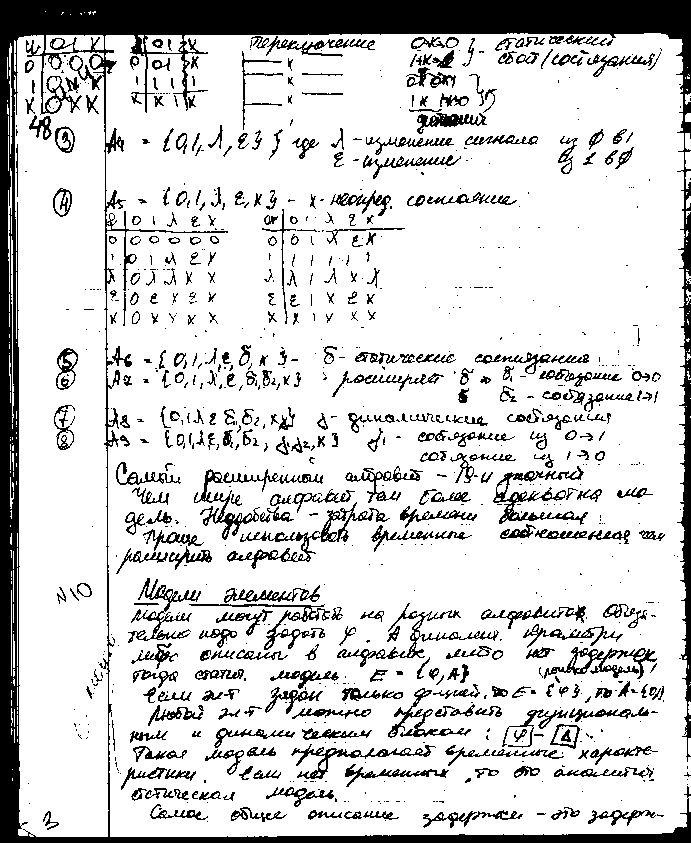 & 0 1 X
0 0 0 0
1 0 1 X
X 0 X X
0 1 X
0 0 1 X
1 1 1 1
X X 1 X
Переключение
0X0
статический
сбой (состязания)
48
③ A4 = {0,1,λ,ε} где λ - изменение сигнала из 0 в 1
ε - изменение из 1 в 0
④ A5 = {0,1,λ,ε,x} - x - неопред. состояние
& 0 1 λ ε X
0 0 0 0 0 0
1 0 1 λ ε X
λ 0 λ λ X X
ε 0 ε X ε X
X 0 X X X X
or 0 1 λ ε X
0 0 1 λ ε X
1 1 1 1 1 1
λ λ 1 λ X X
ε ε 1 X ε X
⑤ A6 = {0,1,λ,ε,б,x} - б - статические состязания
⑥ A7 = {0,1,λ,ε,б1,б2,x} расширяет б б1 - состязание 0→0
б2 - состязание 1→1
⑦ A8 = {0,1,λ,ε,б1,б2,x,j} j - динамические состязания
⑧ A9 = {0,1,λ,ε,б1,б2,j1,j2,x} j1 - состязание из 0→1
состязание из 1→0
Самый расширенный алфавит - 19-и значный
Чем шире алфавит, там более адекватна мо-
дель. Неудобства - затрата времени большая
Проще использовать временные соотношения, чем
расширить алфавит
N10
Модели элементов
Модели могут работать на разных алфавитах. Обяза-
тельно надо задать φ. А динамич. параметры
либо описаны в алфавите, либо нет задержек,
тогда статич. модель. E = {φ, A}
Если эл-т задан только ф-цией, то E = {φ}, то A = {0,1}
Любой эл-т можно представить функциональ-
ным и динамическим блоком: φ - Δ
Такая модель предполагает временные характе-
ристики. Если нет временных, то это
статическая модель.
Самое общее описание задержки - это задерж-
3